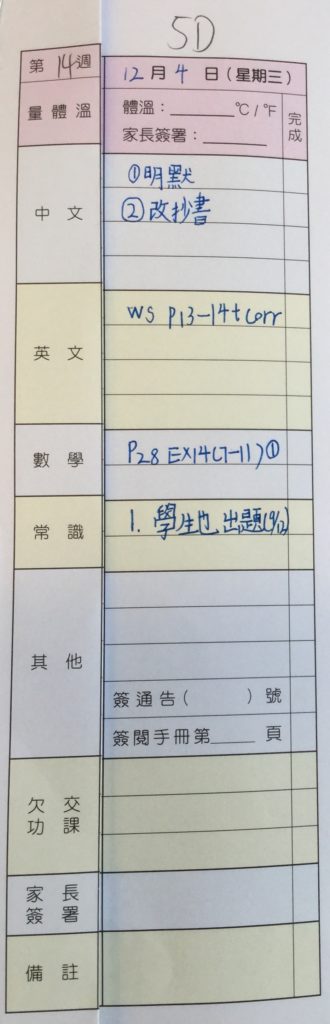 5D
第14週 12月4日(星期三)
量體溫 體溫:______°C/°F 完成
家長簽署:______
中文 ①明默
②改抄書
英文 WS P13-14+Corr
數學 P28 EX14(7-11)①
常識 1. 學生也出題(9/12)
其他
簽通告( )號
簽閱手冊第____頁
欠交功課
家長簽署
備註